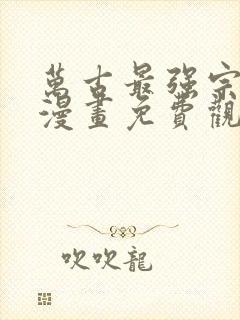 萬古最强宗
漫畫免費觀
吹吹龍